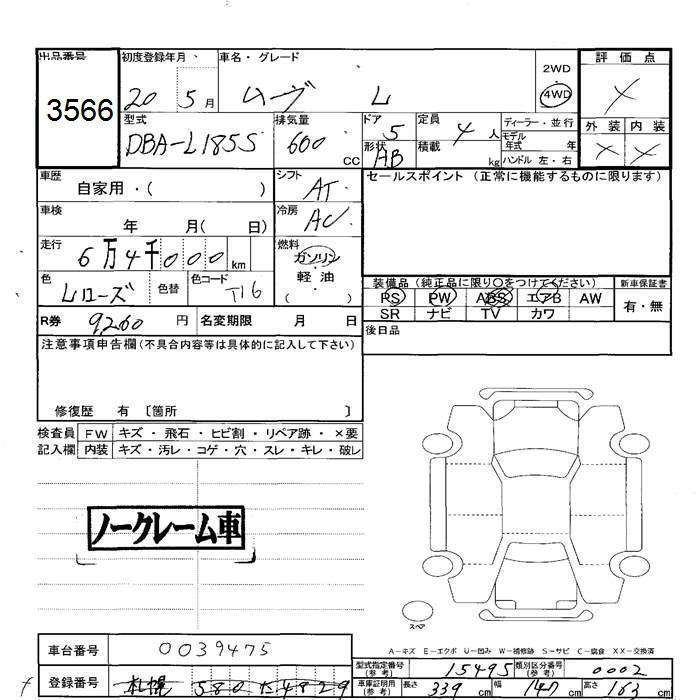 出品番号 初度登録年月 車名・グレード 2WD 評価点
3566 20 5月 ムーヴ L 4WD
型式 排気量 ドア 定員 ディーラー・並行 外装 内装
DBA-L185S 600 CC 5 4人 モデル
形状 積載 年式 年
AB kg ハンドル 左・右
車歴 シフト セールスポイント (正常に機能するものに限ります)
自家用・( ) AT
車検 年 月( 日) 冷房 AC
走行 6万4千000km 燃料
ガソリン
軽油
( )
色 色替 色コード 装備品 (純正品に限り○をつけてください) 新車保証書
Lローズ T16 PS PW ABS エアB AW 有・無
SR ナビ TV カワ
R券 9260円 名変期限 月 日 後日品
注意事項申告欄(不具合内容等は具体的に記入して下さい)
修復歴 有 〔箇所 〕
検査員 FW キズ・飛石・ヒビ割・リペア跡・×要
記入欄 内装 キズ・汚レ・コゲ・穴・スレ・キレ・破レ
ノークレーム車
スペア
A−キズ E−エクボ U−凹み W−補修跡 S−サビ C−腐食 XX−交換済
車台番号 0039475 型式指定番号(参考) 15495 類別区分番号(参考) 0002
登録番号 札幌 580 車庫証明用(参考) 長さ 339cm 幅 147cm 高さ 163cm